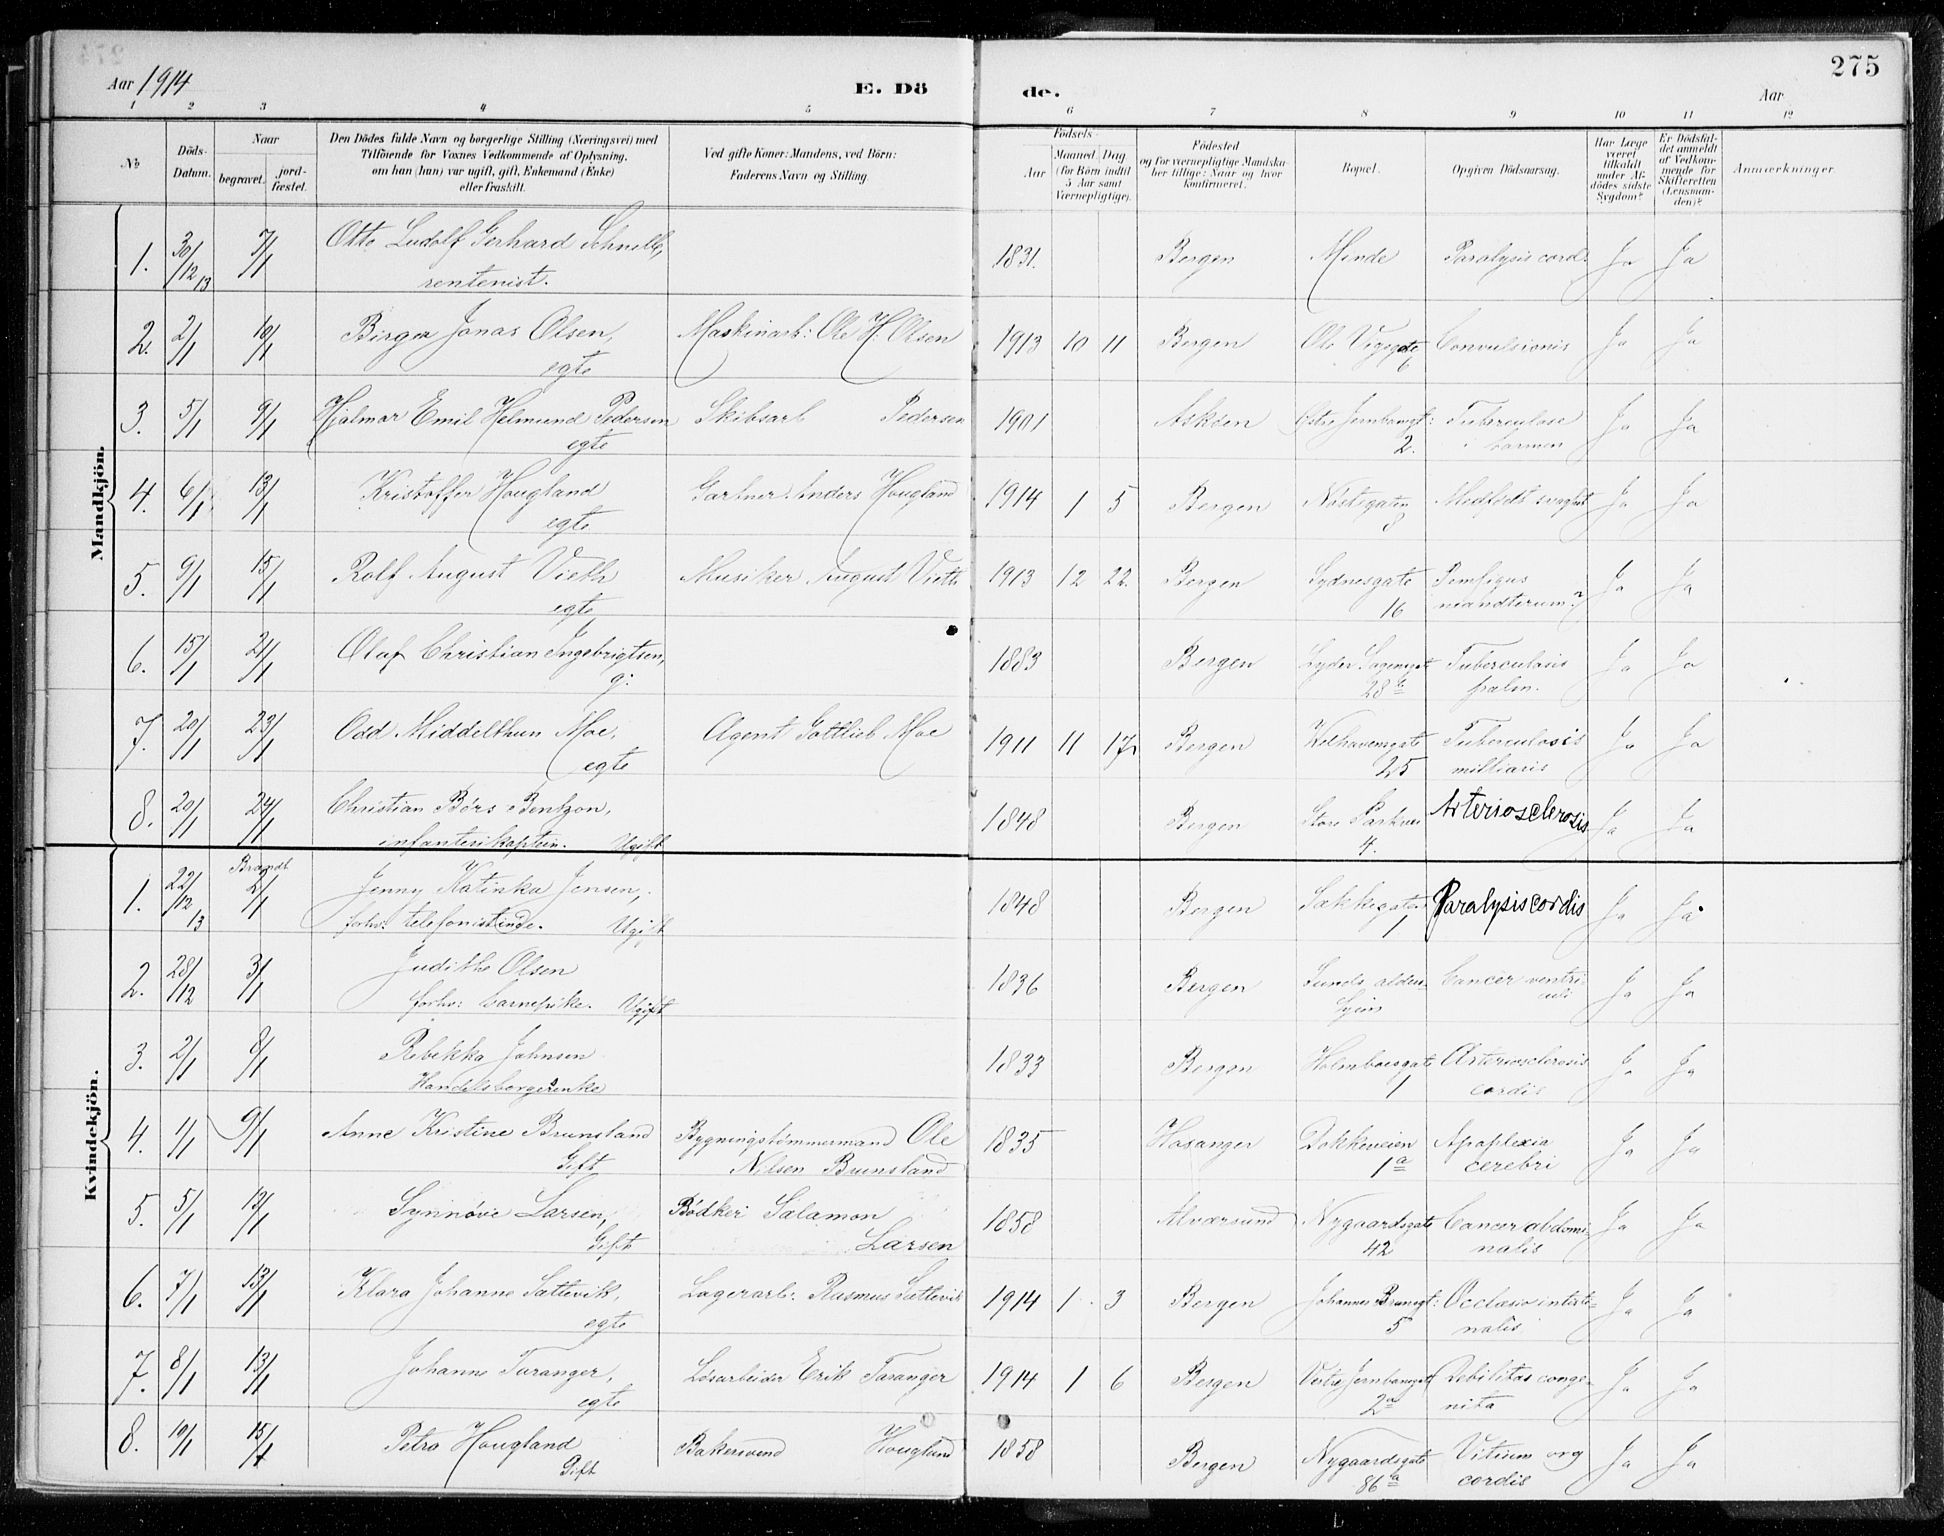 275
Aar 1914 E. Dö de. Aar
1 2 3 4 5 6 7 8 9 10 11 12
No Döds-Datum. Naar begravet. jord-fæstet. Den Dödes fulde Navn og borgerlige Stilling (Næringsvei) med Tilföiende for Voxnes Vedkommende af Oplysning, om han (hun) var ugift, gift, Enkemand (Enke) eller fraskilt. Ved gifte Koner: Mandens, ved Börn: Faderens Navn og Stilling Födsels- Aar Maaned Dag (for Börn indtil 5 Aar samt Værnepligtige). Födested og for værnepligtige Mandskaber tillige: Naar og hvor konfirmeret. Bopæl. Opgiven Dödsaarsag. Har Læge været tilkaldt under Afdödes sidste Sygdom? Er Dödsfaldet anmeldt af Vedkommende for Skifteretten (Lensmanden)? Anmærkninger.
Mandkjön.
1. 30/12 13 7/1 Otto Ludolf Gerhard Schnelle, 1831. Bergen Minde Paralysis cord. Ja Ja
rentenist.
2. 2/1 10/1 Birger Jonas Olsen, Maskinarb: Ole H. Olsen 1913 10 11 Bergen Ole Vigsgate Convulsionis Ja Ja
egte 6
3. 5/1 9/1 Hjalmar Emil Helmund Pedersen Skibsarb Pedersen 1901 Askøen Østre Jernbanegt: Tuberculose Ja Ja
egte 2.
4. 6/1 13/1 Kristoffer Hougland Gartner Anders Hougland 1914 1 5 Bergen Nøstegaten Medfødt svaghet Ja Ja
egte 8
5. 9/1 15/1 Rolf August Vieth Musiker August Vieth 1913 12 22. Bergen Sydnesgate Pemfigus Ja Ja
egte 16 neandterum?
6. 15/1 21/1 Olaf Christian Ingebrigtsen, 1883 Bergen Lyder Sagensgt Tuberculosis Ja Ja
g: 28 b pulm.
7. 20/1 23/1 Odd Middelthun Moe, Agent Gottlieb Moe 1911 11 17 Bergen Welhavensgate Tuberculosis Ja Ja
egte 25 milliaris
8. 20/1 24/1 Christian Børs Bentzon, 1848 Bergen Store Parkvei Arteriosclerosis Ja Ja
infanterikaptein. Ugift 4.
Kvindekjön.
1. 22/12 13 Brændt 2/1 Jenny Katinka Jensen, 1848 Bergen Sækkegaten Paralysis cordis Ja Ja
forhv: telefonistinde. Ugift 1
2. 28/12 3/1 Judithe Olsen 1836 Bergen Sunds alders- Cancer ventri- Ja Ja
forhv: barnepike. Ugift hjem culi
3. 2/1 8/1 Rebekka Johnsen 1833 Bergen Holmboesgate Arteriosclerosis Ja Ja
Handelsborgerenke 1 cordis
4. 1/1 9/1 Anne Kristine Brunsland Bygningstømmermand Ole 1835 Hosanger Dokkeveien Apoplexia Ja Ja
Gift Nilsen Brunsland 1 a cerebri
5. 5/1 12/1 Synnøve Larsen, Bødker Salamon 1858 Alværsund Nygaardsgate Cancer abdomi- Ja Ja
Gift Larsen 42 nalis
6. 7/1 13/1 Klara Johanne Sættevik, Lagerarb: Rasmus Sættevik 1914 1 3 Bergen Johannes Brunsgt: Occlusio intesti- Ja Ja
egte 5 nalis
7. 8/1 13/1 Johanne Taranger, Løsarbeider Erik Taranger 1914 1 6 Bergen Vestre Jernbanegt Debilitas conge- Ja Ja
egte 2 a nita
8. 10/1 15/1 Petra Hougland Bakersvend Hougland 1858 Bergen Nygaardsgate Vitium org Ja Ja
Gift 86 a cordis